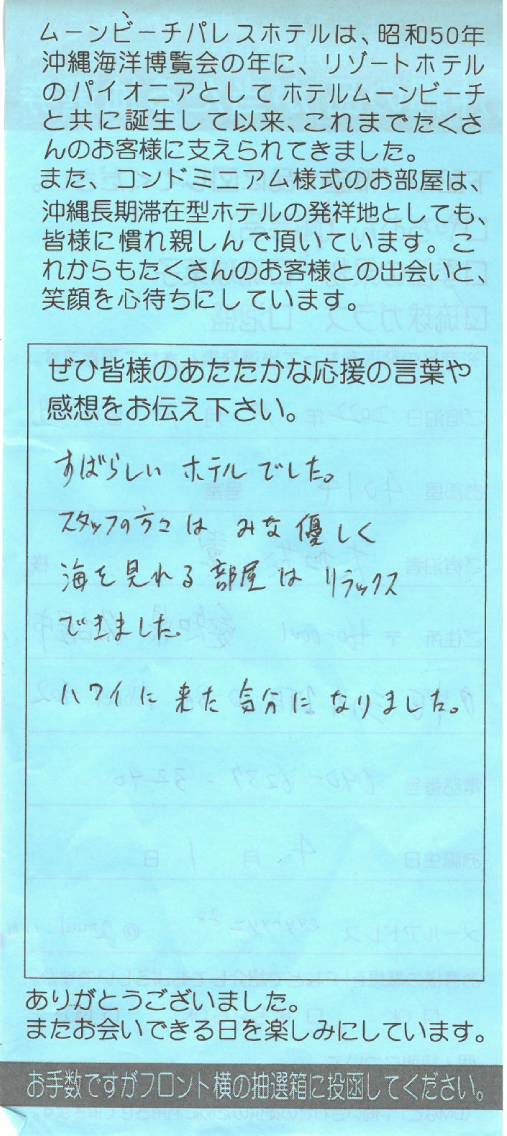 ムーンビーチパレスホテルは、昭和50年
沖縄海洋博覧会の年に、リゾートホテル
のパイオニアとしてホテルムーンビーチ
と共に誕生して以来、これまでたくさ
んのお客様に支えられてきました。
また、コンドミニアム様式のお部屋は、
沖縄長期滞在型ホテルの発祥地としても、
皆様に慣れ親しんで頂いています。こ
れからもたくさんのお客様との出会いと、
笑顔を心待ちにしています。
ぜひ皆様のあたたかな応援の言葉や
感想をお伝え下さい。
すばらしい ホテルでした。
スタッフの方々は みな優しく
海を見れる部屋は リラックス
できました。
ハワイに来た気分になりました。
ありがとうございました。
またお会いできる日を楽しみにしています。
お手数ですがフロント横の抽選箱に投函してください。